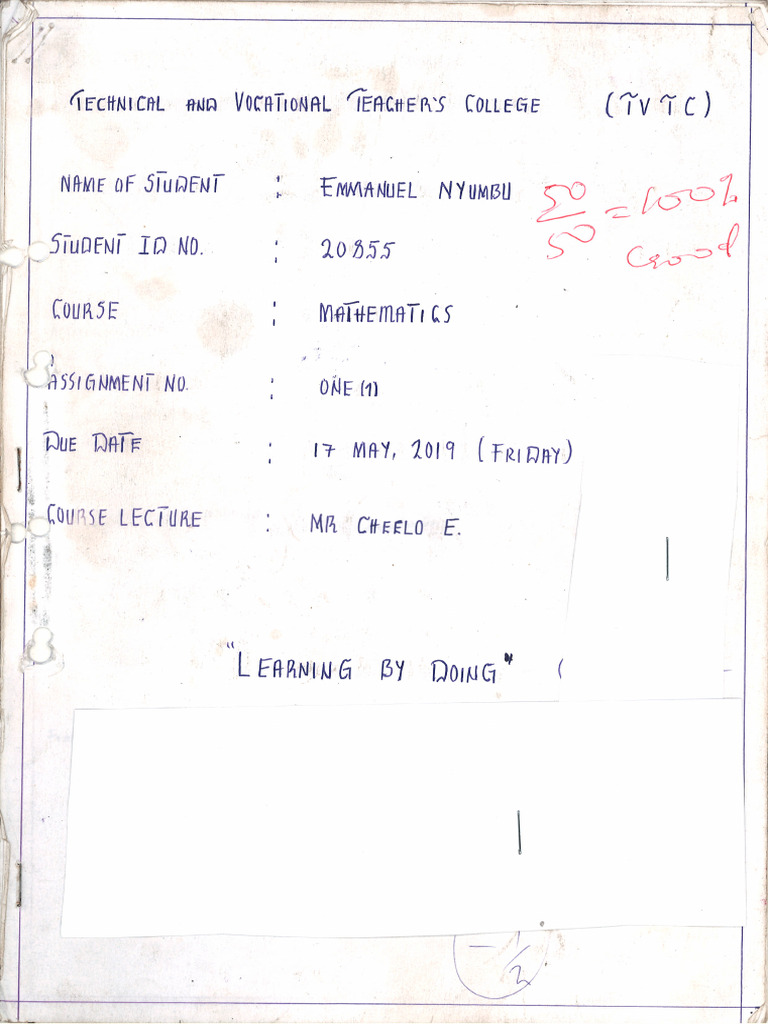 TECHNICAL AND VOCATIONAL TEACHER'S COLLEGE (TVTC)
NAME OF STUDENT : EMMANUEL NYUMBU
50/50 = 100%
Good
STUDENT ID NO. : 20855
COURSE : MATHEMATICS
ASSIGNMENT NO. : ONE (1)
DUE DATE : 17 MAY, 2019 (FRIDAY)
COURSE LECTURE : MR CHEELO E.
"LEARNING BY DOING" (
- 1/2